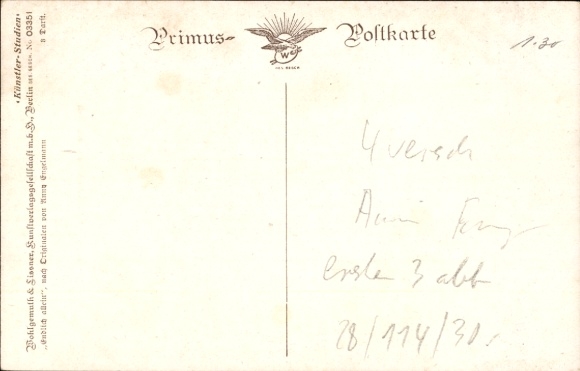 Primus-Postkarte
W & L
GES. GESCH
1.30
„Künstler-Studien“
Wohlgemuth & Lissner, Kunstverlagsgesellschaft m.b.H., Berlin GES. GESCH. No. 03351
„Endlich allein“, nach Originalen von Anny Engelmann
8 Darst.
4 versch
ersten 3 abb
28/114/30.